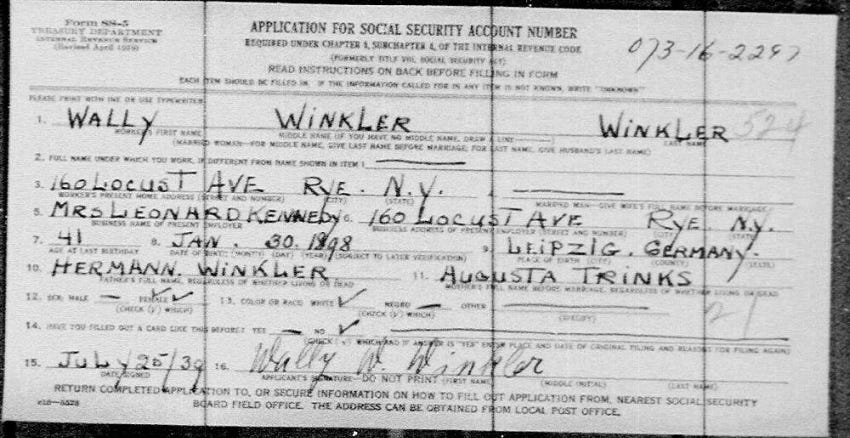 Form SS-5
TREASURY DEPARTMENT
INTERNAL REVENUE SERVICE
(Revised April 1939)
APPLICATION FOR SOCIAL SECURITY ACCOUNT NUMBER
REQUIRED UNDER CHAPTER 9, SUBCHAPTER A, OF THE INTERNAL REVENUE CODE
(FORMERLY TITLE VIII, SOCIAL SECURITY ACT)
READ INSTRUCTIONS ON BACK BEFORE FILLING IN FORM
073-16-2297
EACH ITEM SHOULD BE FILLED IN. IF THE INFORMATION CALLED FOR IN ANY ITEM IS NOT KNOWN, WRITE "UNKNOWN"
PLEASE PRINT WITH INK OR USE TYPEWRITER
1. WALLY WINKLER WINKLER 524
WORKER'S FIRST NAME MIDDLE NAME (IF YOU HAVE NO MIDDLE NAME, DRAW A LINE) LAST NAME
(MARRIED WOMAN—FOR MIDDLE NAME, GIVE LAST NAME BEFORE MARRIAGE; FOR LAST NAME, GIVE HUSBAND'S LAST NAME)
2. FULL NAME UNDER WHICH YOU WORK, IF DIFFERENT FROM NAME SHOWN IN ITEM 1
3. 160 LOCUST AVE RYE. N.Y. 4.
WORKER'S PRESENT HOME ADDRESS (STREET AND NUMBER) (CITY) (STATE) MARRIED MAN—GIVE WIFE'S FULL NAME BEFORE MARRIAGE
5. MRS LEONARD KENNEDY 6. 160 LOCUST AVE RYE. N.Y.
BUSINESS NAME OF PRESENT EMPLOYER BUSINESS ADDRESS OF PRESENT EMPLOYER (STREET AND NUMBER) (CITY) (STATE)
7. 41 8. JAN. 30. 1898 9. LEIPZIG. GERMANY.
AGE AT LAST BIRTHDAY DATE OF BIRTH: (MONTH) (DAY) (YEAR) (SUBJECT TO LATER VERIFICATION) PLACE OF BIRTH (CITY) (COUNTY) (STATE)
10. HERMANN. WINKLER 11. AUGUSTA TRINKS
FATHER'S FULL NAME, REGARDLESS OF WHETHER LIVING OR DEAD MOTHER'S FULL NAME BEFORE MARRIAGE, REGARDLESS OF WHETHER LIVING OR DEAD
12. SEX: MALE — FEMALE ✓ 13. COLOR OR RACE: WHITE ✓ NEGRO — OTHER
(CHECK (✓) WHICH) (CHECK (✓) WHICH) (SPECIFY)
21
14. HAVE YOU FILLED OUT A CARD LIKE THIS BEFORE? YES — NO ✓
(CHECK (✓) WHICH AND IF ANSWER IS "YES" ENTER PLACE AND DATE OF ORIGINAL FILING AND REASONS FOR FILING AGAIN)
15. JULY 25/39 16. Wally W. Winkler
DATE SIGNED APPLICANT'S SIGNATURE—DO NOT PRINT (FIRST NAME) (MIDDLE INITIAL) (LAST NAME)
RETURN COMPLETED APPLICATION TO, OR SECURE INFORMATION ON HOW TO FILL OUT APPLICATION FROM, NEAREST SOCIAL SECURITY
BOARD FIELD OFFICE. THE ADDRESS CAN BE OBTAINED FROM LOCAL POST OFFICE.